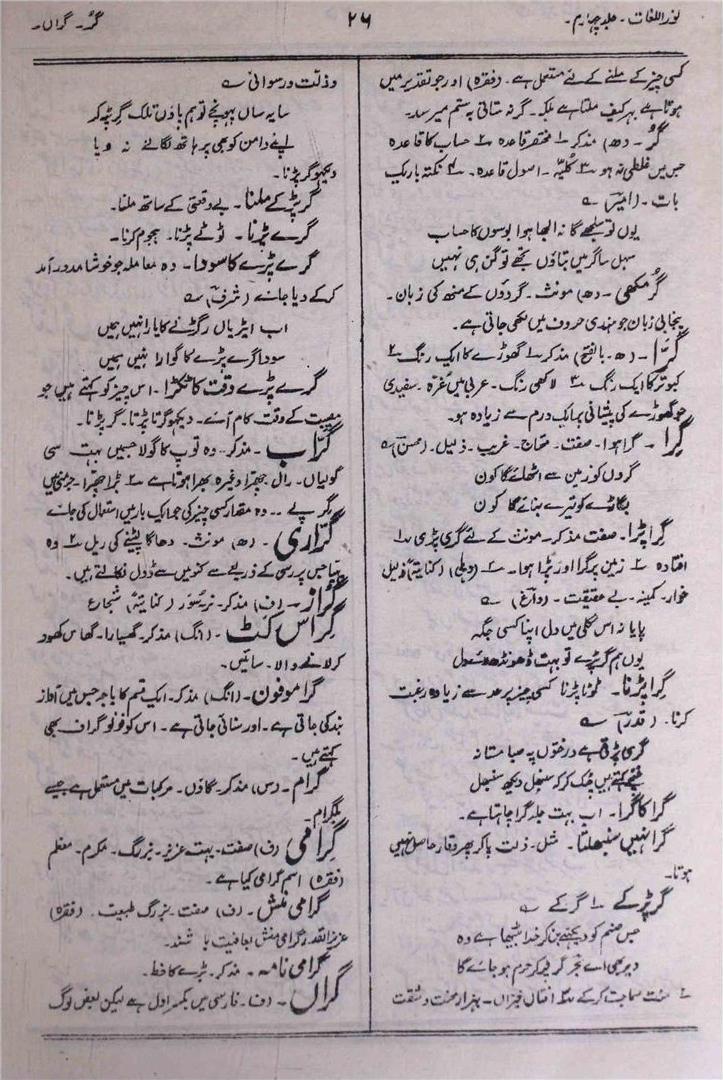 نور اللغات ۔ جلد چہارم ۔
۲۶
گُر ۔ گراں ۔
کسی چیز کے ملنے کے لئے مستعمل ہے ۔ (فقرہ) اور جو تقدیر میں
ہوتا ہے بہر کیف ملتا ہے بلکہ ۔ گر نہ ستانی بہ ستم میرسد ۔
گُر ۔ (ھ) مذکر ۱؎ مختصر قاعدہ ۲؎ حساب کا قاعدہ
جس میں غلطی نہ ہو ۳؎ کلیہ ۔ اصول قاعدہ ۔ ۴؎ نکتہ باریک
بات ۔ (امیر) ؎
یوں تو سلجھے گا نہ الجھا ہوا بوسوں کا حساب
سہل سا گر میں بتاؤں تجھے تو گن ہی نہیں
گُر مکھی ۔ (ھ) مونث ۔ گروؤں کے منھ کی زبان ۔
پنجابی زبان جو ہندی حروف میں لکھی جاتی ہے ۔
گَرّا ۔ (ھ ۔ بالفتح) مذکر ۱؎ گھوڑے کا ایک رنگ ۲؎
کبوتر کا ایک رنگ ۳؎ لاکھی رنگ ۔ عربی میں غرّہ ۔ سفیدی
جو گھوڑے کی پیشانی پر ایک درم سے زیادہ ہو ۔
گِرا ۔ گرا ہوا ۔ صفت ۔ محتاج ۔ غریب ۔ ذلیل ۔ (محسن) ؎
گروں کو زمین سے اٹھائے گا کون
بگاڑے کو تیرے بنائے گا کون
گِرا پڑا ۔ صفت مذکر ۔ مونث کے لئے گری پڑی ۱؎
افتادہ ۲؎ زمین پر گرا اور پڑا ہوا ۔ ۳؎ (دہلی) (کنایۃً) ذلیل
خوار ۔ کمینہ ۔ بے حقیقت ۔ (داغ) ؎
پایا نہ اس گلی میں دل اپنا کسی جگہ
یوں ہم گرے پڑے تو بہت ڈھونڈھ
گِرا پڑنا ۔ ٹوٹا پڑنا کسی چیز پر حد سے زیادہ رغبت
کرنا ۔ (قدر) ؎
گری پڑتی ہے درختوں پہ صبا مستانہ
غنچے کہتے ہیں چٹک کر کہ سنبھل دیکھ سنبھل
گرا کا گرا ۔ اب بہت جلد گرا چاہتا ہے ۔
گرا نہیں سنبھلتا ۔ مثل ۔ ذلت پا کر پھر وقار حاصل نہیں
ہوتا ۔
گر پڑ کے ۱؎ گر کے ؎
جس صنم کو دیکھتے بن کر خدا بیٹھا ہے وہ
دیر بھی اے گر پڑ کے حرم ہو جائے گا
۲؎ منت سماجت کر کے ۳؎ افتاں خیزاں ۔ ہزار محنت و مشقت
و ذلت و رسوائی ؎
سایہ ساں پہونچے تو ہم پاؤں تلک گر پڑ کر
اپنے دامن کو بھی پر ہاتھ لگانے نہ دیا
دیکھو گر پڑنا ۔
گر پڑ کے ملنا ۔ بے وقعتی کے ساتھ ملنا ۔
گرے پڑنا ۔ ٹوٹے پڑنا ۔ ہجوم کرنا ۔
گرے پڑے کا سودا ۔ وہ معاملہ جو خوشامد در آمد
کر کے دیا جائے (شرف) ؎
اب ایڑیاں رگڑنے کا یارا نہیں ہمیں
سودا گرے پڑے کا گوارا نہیں ہمیں
گرے پڑے وقت کا ٹکڑا ۔ اس چیز کو کہتے ہیں جو
مصیبت کے وقت کام آئے ۔ دیکھو گرتا پڑتا ۔ گر پڑنا ۔
گُراب ۔ مذکر ۔ وہ توپ کا گولا جس میں بہت سی
گولیاں ۔ رال چھرّا وغیرہ بھرا ہوتا ہے ۲؎ بڑا چھرّا ۔
وہ مقدار کسی چیز کی جو ایک بار میں استعمال کی جائے
گراری ۔ (ھ) مونث ۔ دھاگا لپیٹنے کی ریل ۲؎ وہ
جس پر رسی کے ذریعے سے کنویں سے ڈول نکالتے ہیں ۔
گُراز ۔ (ف) مذکر ۔ نر سُور (کنایۃً) شجاع
گراس کٹ ۔ (انگ) مذکر ۔ گھسیارا ۔ گھاس کھود
کر لانے والا ۔ سائیس ۔
گراموفون ۔ (انگ) مذکر ۔ ایک قسم کا باجہ جس میں آواز
بند کی جاتی ہے ۔ اور سنائی جاتی ہے ۔ اس کو فونوگراف بھی
کہتے ہیں ۔
گرام ۔ (س) مذکر ۔ گاؤں ۔ مرکبات میں مستعمل ہے جیسے
بلگرام ۔
گرامی (ف) صفت ۔ بہت عزیز ۔ بزرگ ۔ مکرم ۔ معظم
(فقرہ) اسم گرامی کیا ہے ۔
گرامی منش ۔ (ف) صفت ۔ بزرگ طبیعت ۔ (فقرہ)
عزیز القدر گرامی منش بعافیت باشند ۔
گرامی نامہ ۔ مذکر ۔ بڑے کا خط ۔
گراں ۔ (ف ۔ فارسی میں بکسر اول ہے لیکن بعض لوگ